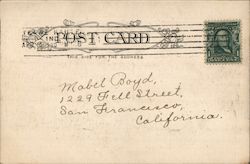 POST CARD
THIS SIDE FOR THE ADDRESS
Mabel Boyd,
1229 Fell Street,
San Francisco,
California.